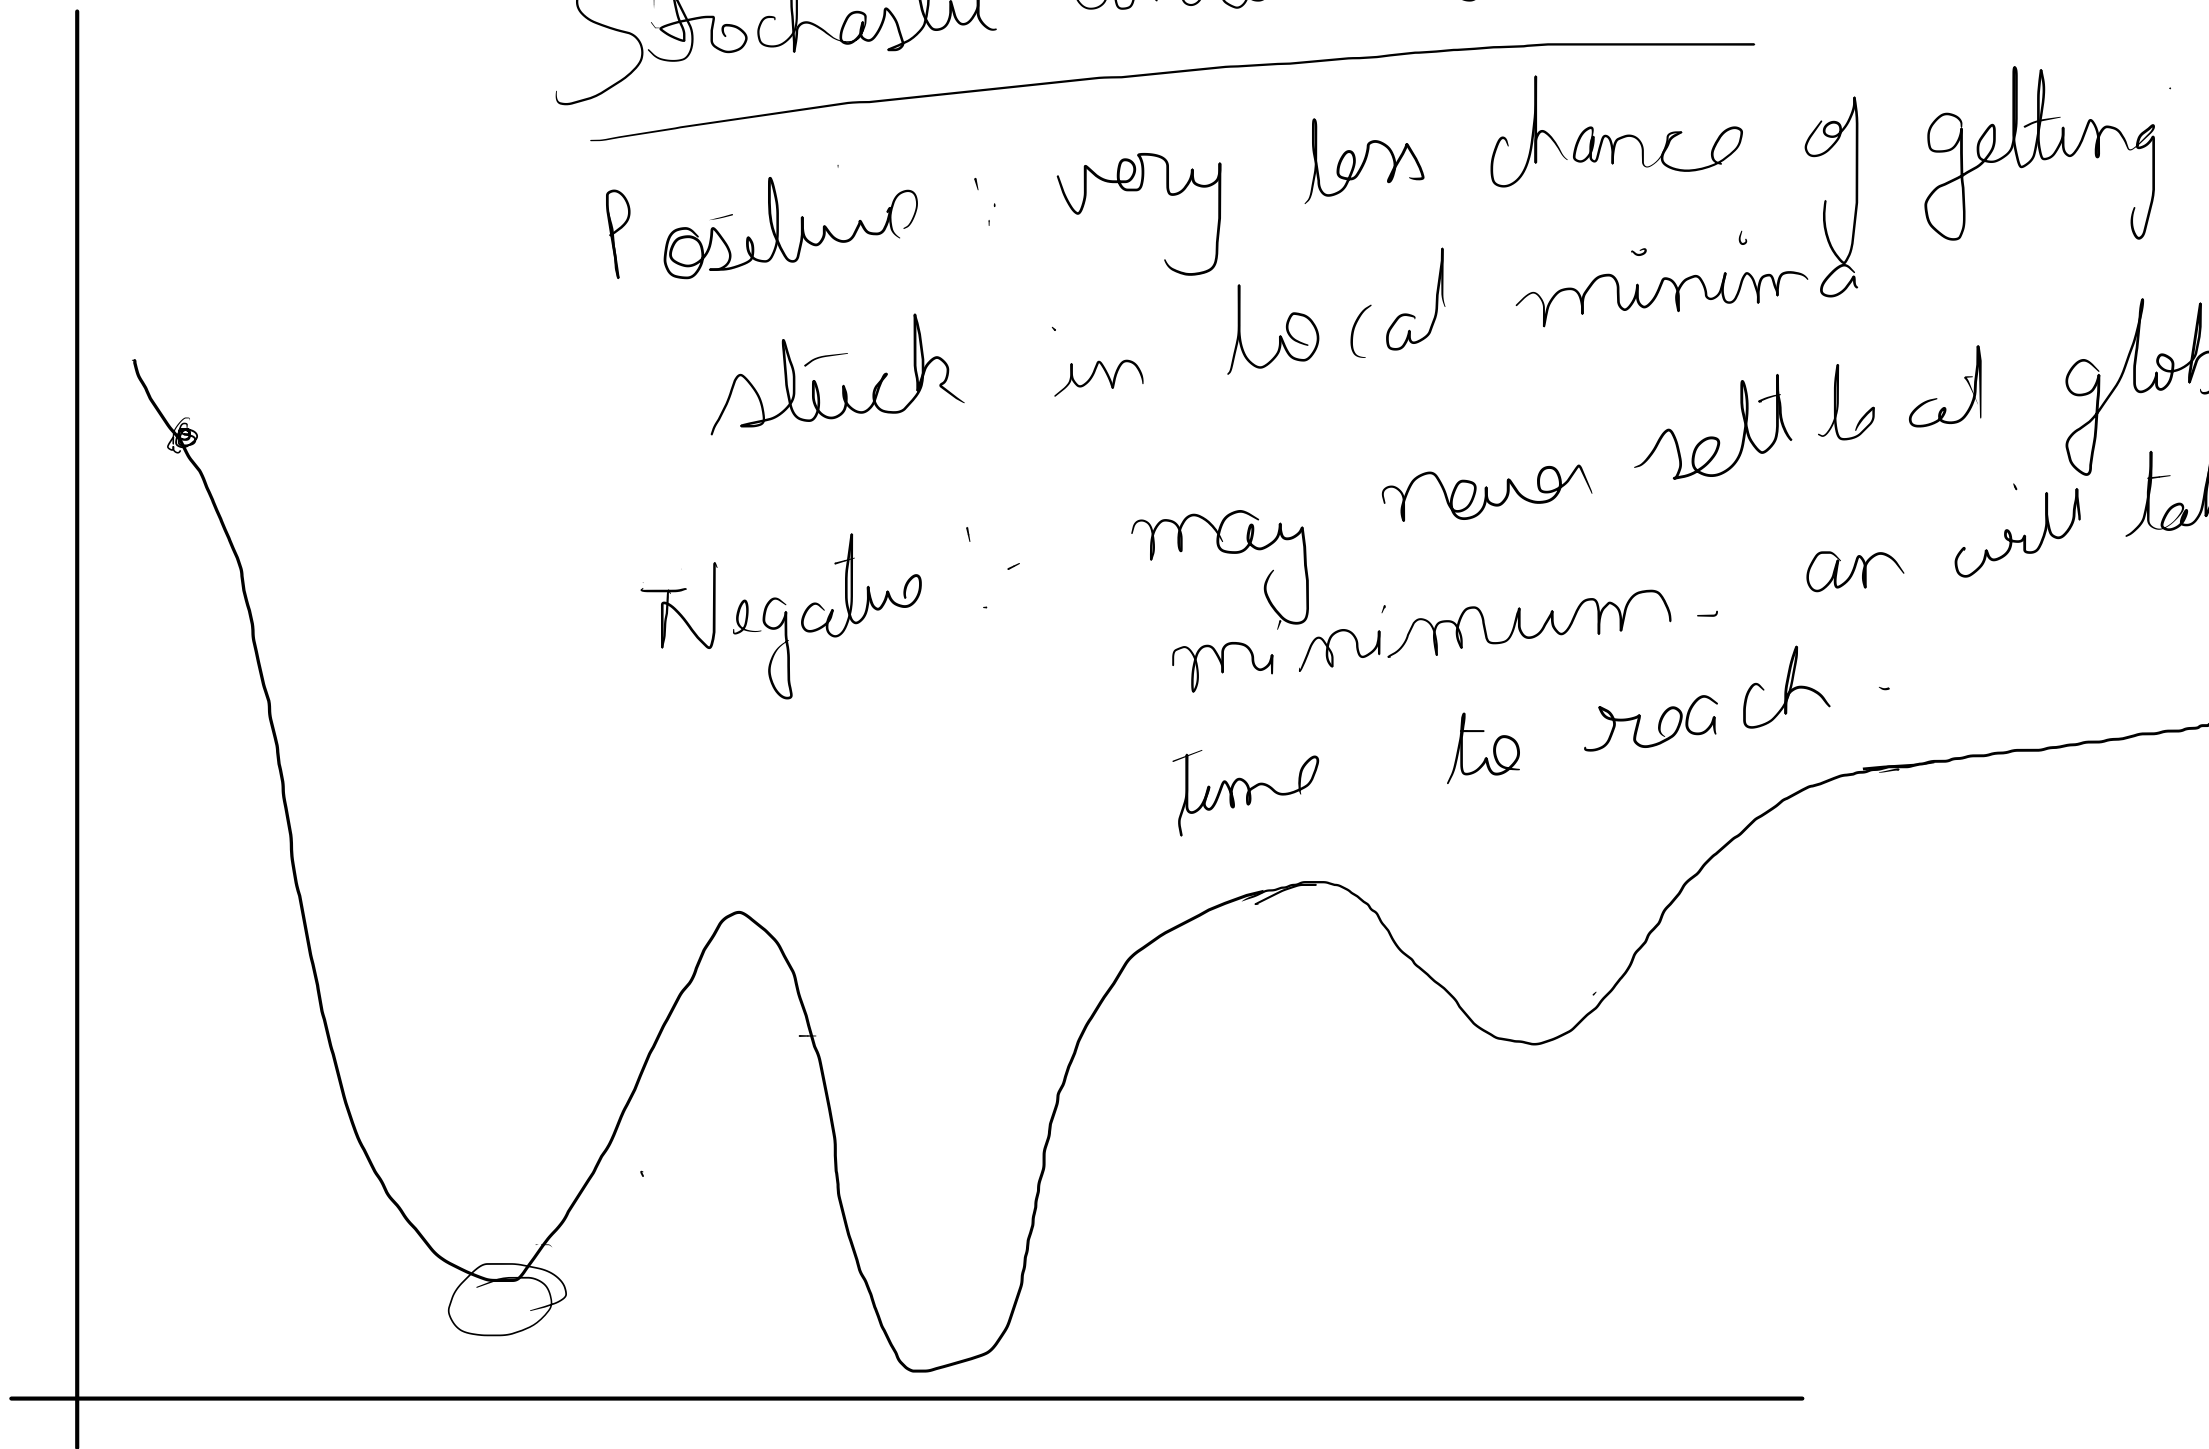 Stochastic
Positive : very less chance of getting
stuck in local minima
Negative :- may never settle at glob
minimum - an will tak
time to reach .